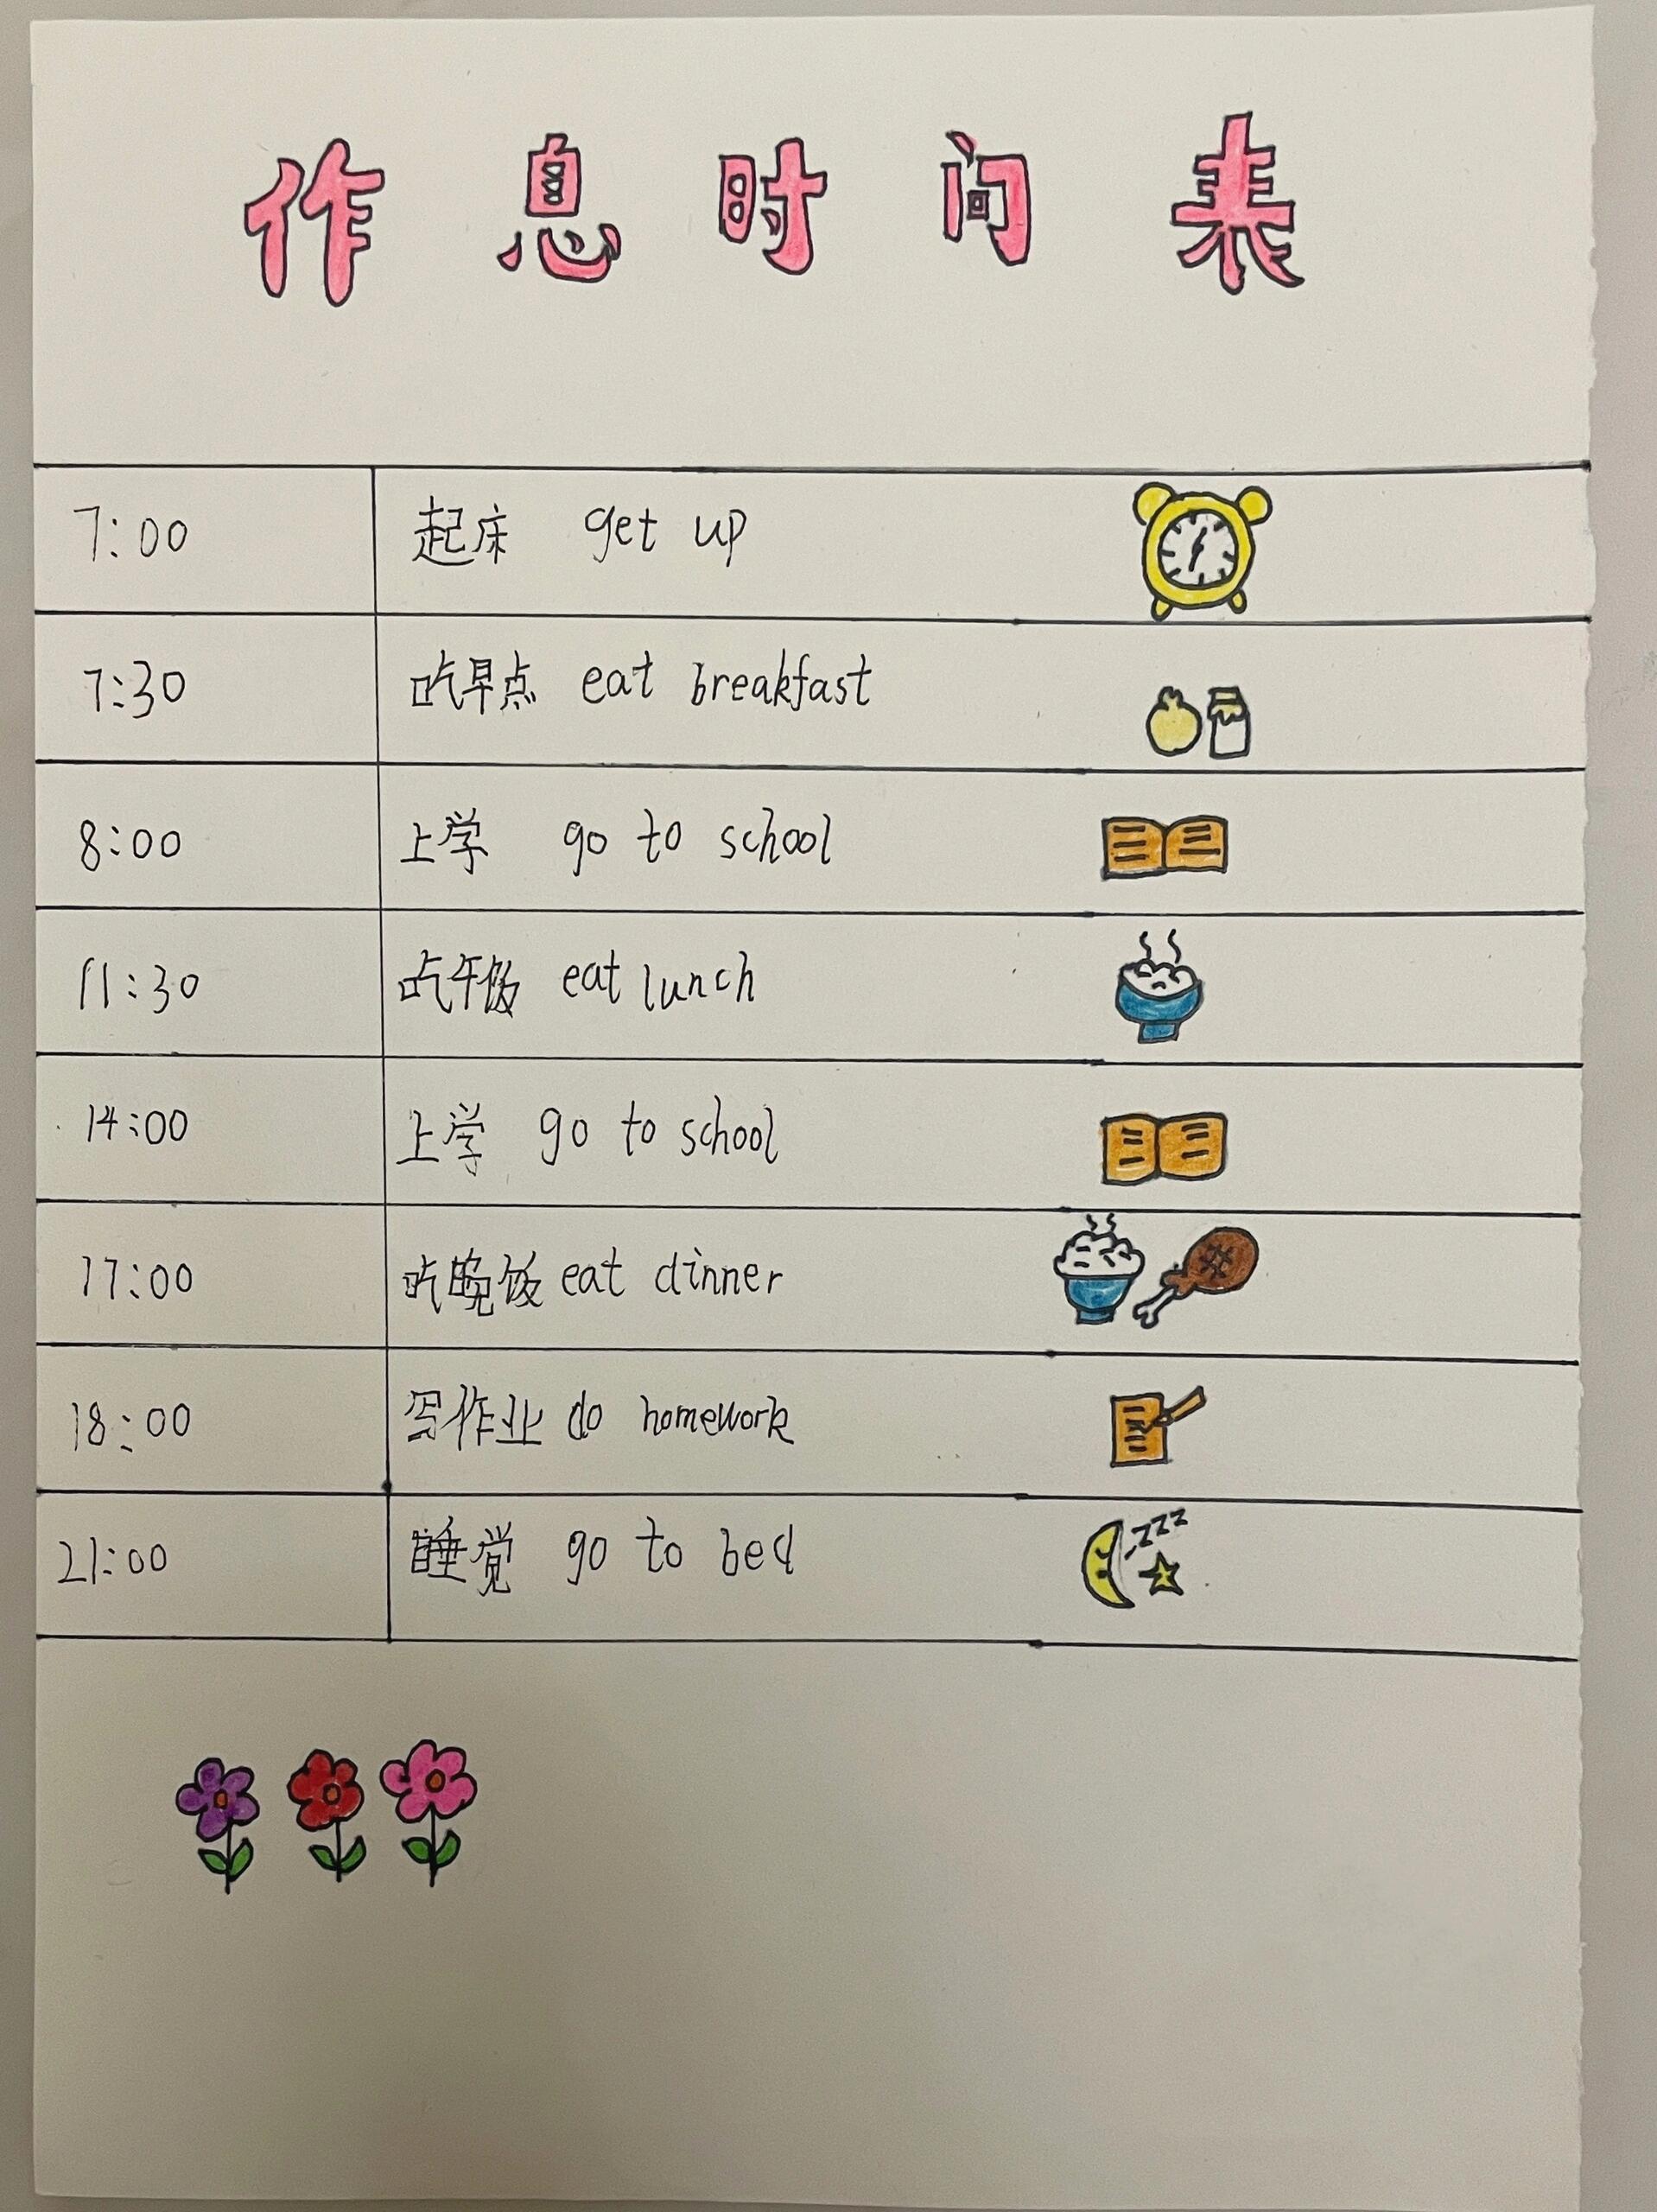 作息时间表
7:00 起床 get up
7:30 吃早点 eat breakfast
8:00 上学 go to school
11:30 吃午饭 eat lunch
14:00 上学 go to school
17:00 吃晚饭 eat dinner
18:00 写作业 do homework
21:00 睡觉 go to bed
zzz